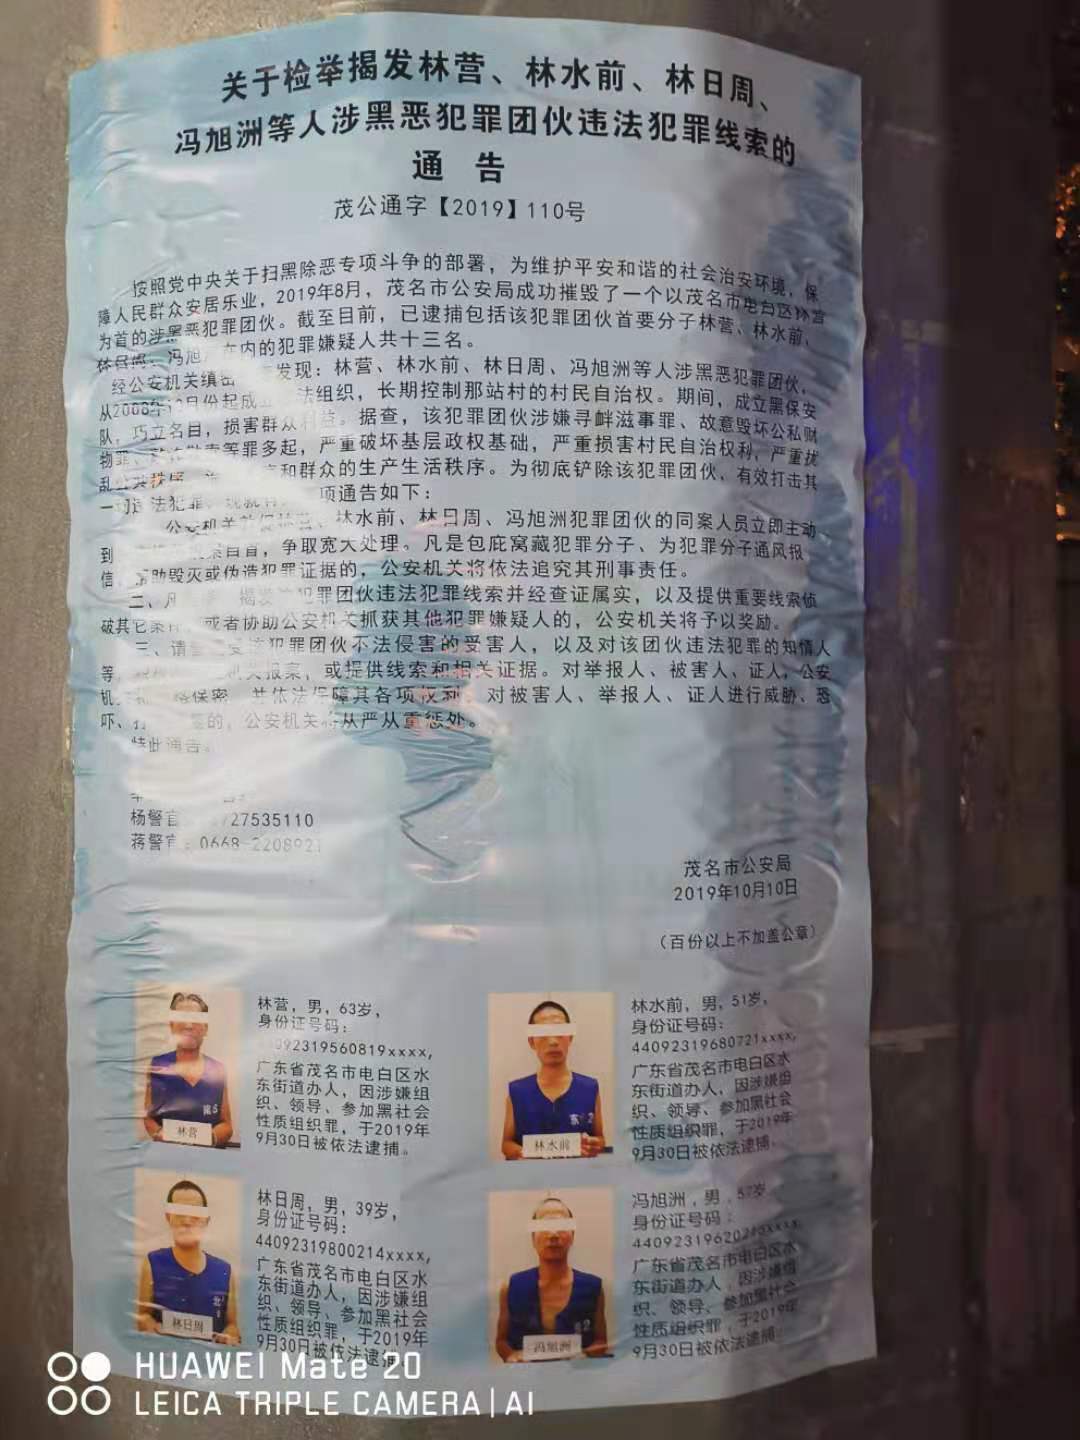 关于检举揭发林营、林水前、林日周、
冯旭洲等人涉黑恶犯罪团伙违法犯罪线索的
通 告
茂公通字【2019】110号
按照党中央关于扫黑除恶专项斗争的部署，为维护平安和谐的社会治安环境，保
障人民群众安居乐业，2019年8月，茂名市公安局成功摧毁了一个以茂名市电白区林营
为首的涉黑恶犯罪团伙。截至目前，已逮捕包括该犯罪团伙首要分子林营、林水前、
冯旭 在内的犯罪嫌疑人共十三名。
经公安机关缜密 发现：林营、林水前、林日周、冯旭洲等人涉黑恶犯罪团伙，
从2008年 月份起成立 法组织，长期控制那站村的村民自治权。期间，成立黑保安
队，巧立名目，损害群众利益。据查，该犯罪团伙涉嫌寻衅滋事罪、故意毁坏公私财
物罪、 等罪多起，严重破坏基层政权基础，严重损害村民自治权利，严重扰
乱公共秩序 和群众的生产生活秩序。为彻底铲除该犯罪团伙，有效打击其
一切违法犯罪，现就有 项通告如下：
公安机关 林水前、林日周、冯旭洲犯罪团伙的同案人员立即主动
到 自首，争取宽大处理。凡是包庇窝藏犯罪分子、为犯罪分子通风报
信、帮助毁灭或伪造犯罪证据的，公安机关将依法追究其刑事责任。
二、凡 揭发 犯罪团伙违法犯罪线索并经查证属实，以及提供重要线索侦
破其它案件，或者协助公安机关抓获其他犯罪嫌疑人的，公安机关将予以奖励。
三、请 受该犯罪团伙不法侵害的受害人，以及对该团伙违法犯罪的知情人
等， 机关报案，或提供线索和相关证据。对举报人、被害人、证人，公安
机 保密，并依法保障其各项权利。对被害人、举报人、证人进行威胁、恐
吓、打 的，公安机关将从严从重惩处。
特此通告。
杨警官 27535110
蒋警官：0668-2208921
茂名市公安局
2019年10月10日
（百份以上不加盖公章）
林营，男，63岁，
身份证号码：
44092319560819xxxx,
广东省茂名市电白区水
东街道办人，因涉嫌组
织、领导、参加黑社会
性质组织罪，于2019年
9月30日被依法逮捕。
林营
林水前，男，51岁，
身份证号码：
44092319680721xxxx,
广东省茂名市电白区水
东街道办人，因涉嫌组
织、领导、参加黑社会
性质组织罪，于2019年
9月30日被依法逮捕。
林水前
林日周，男，39岁，
身份证号码：
44092319800214xxxx,
广东省茂名市电白区水
东街道办人，因涉嫌组
织、领导、参加黑社会
性质组织罪，于2019年
9月30日被依法逮捕。
林日周
冯旭洲，男，57岁，
身份证号码：
广东省茂名市电白区水
东街道办人，因涉嫌组
织、领导、参加黑社会
性质组织罪，于2019年
9月30日被依法逮捕。
冯旭洲
HUAWEI Mate 20
LEICA TRIPLE CAMERA | AI